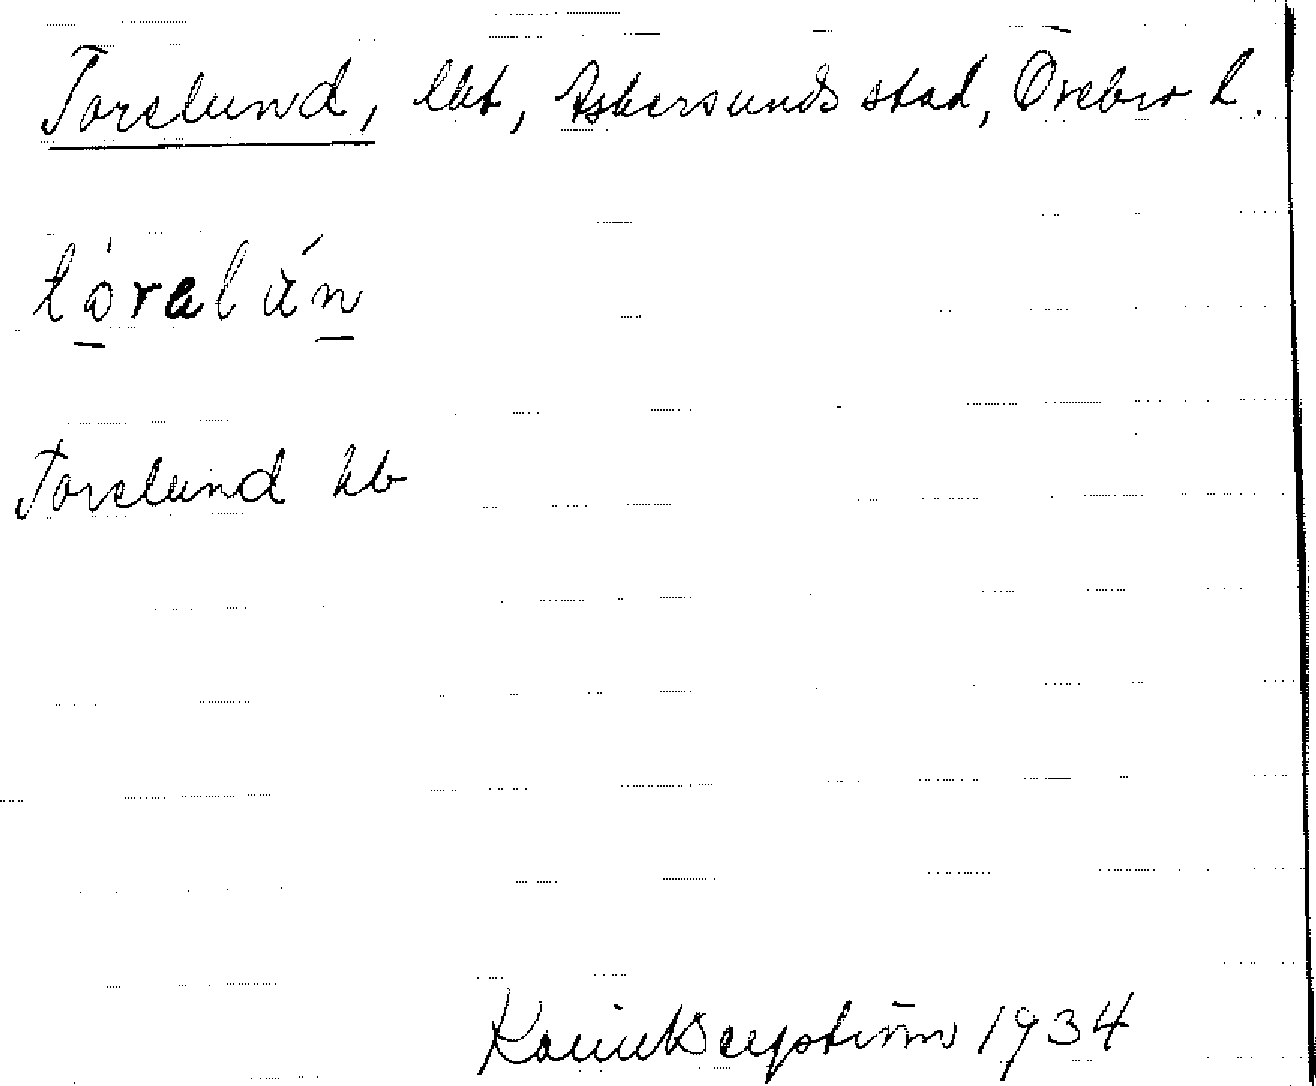 Torelund, lht, Askersunds stad, Örebro l.
Torelund kb
Karin Bergström 1934